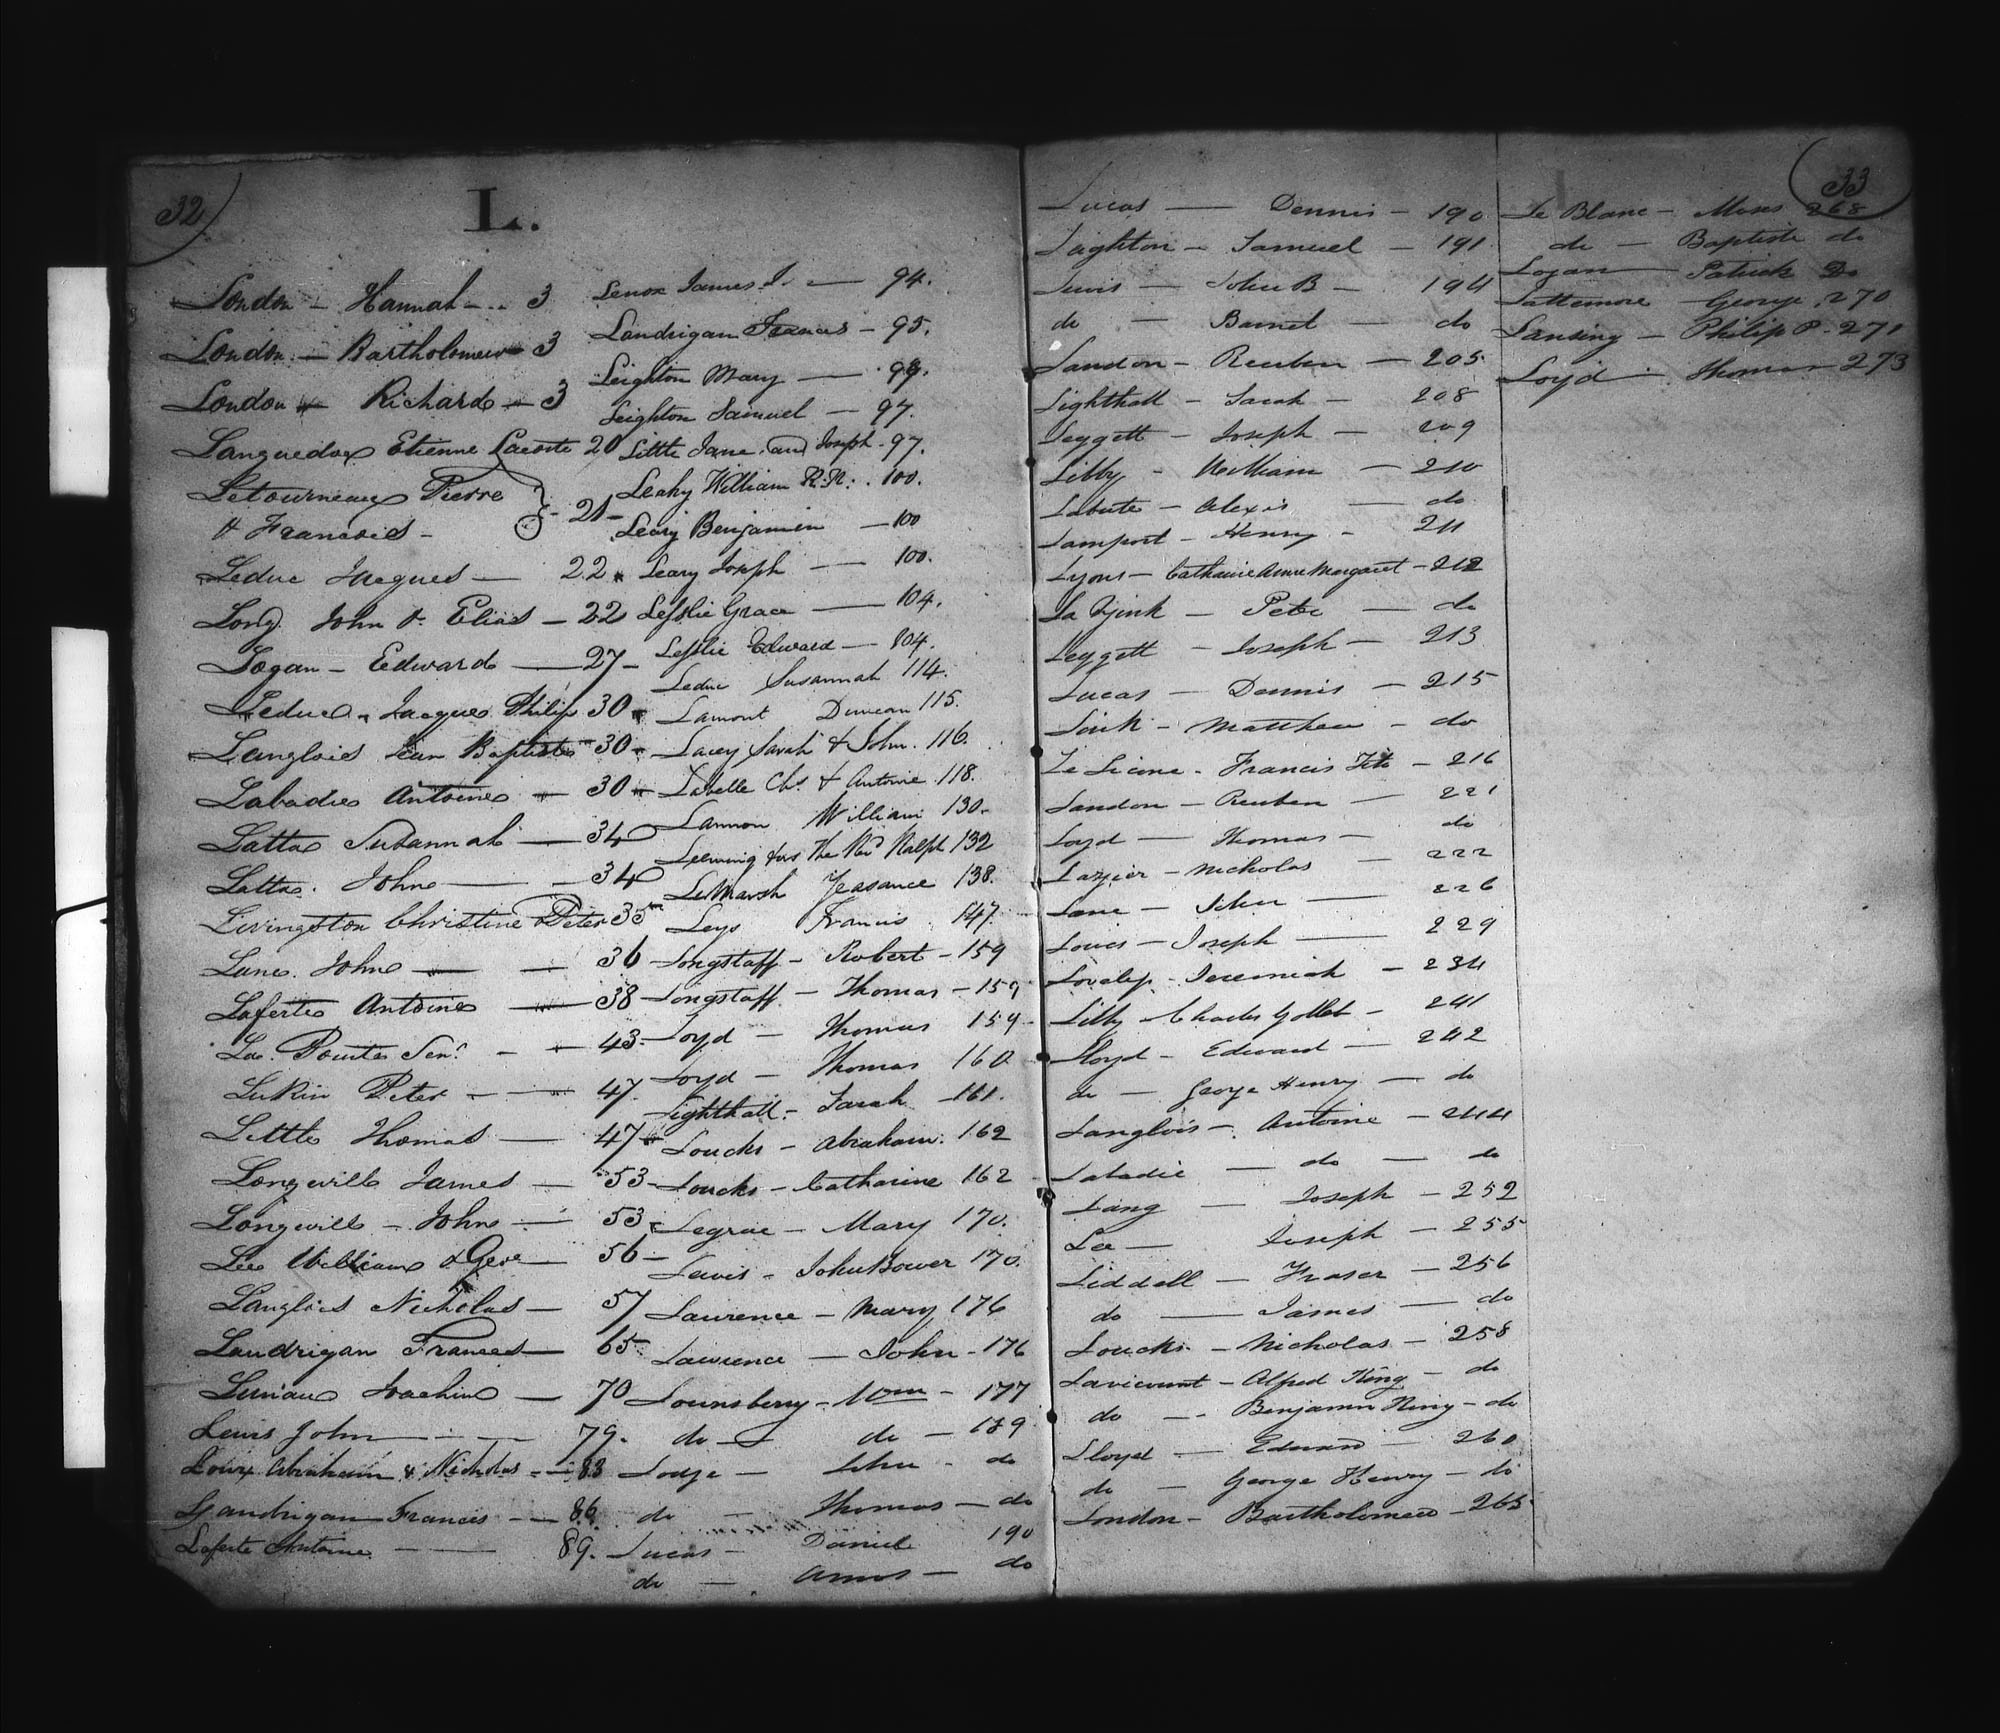 32
L.
London - Hannah - 3
London - Bartholomew 3
London - Richard - 3
Languedoc Etienne Lacoste 20
Letourneaux Pierre
& Francois - } - 21 -
Leduc Jacques - 22
Long John & Elias - 22
Logan - Edward - 27 -
Leduc - Jacques Philip 30
Langlois Jean Baptiste - 30
Labadie Antoine - 30
Latta Susannah - 34
Latta John - 34
Livingston Christine & Peter 35
Lane John - 36
Laferte Antoine - 38
La Pointe Senr. - 43
Lukin Peter - 47
Little Thomas - 47
Longwill James - 53
Longwill - John - 53
Lee William & Geo - 56
Langlois Nicholas - 57
Landrigan Frances - 65
Joachim - 70
Lewis John - 79.
Loux Abraham & Nicholas - 83
Landrigan Francis - 86.
Laferte Antoine - 89.
Lenox James J. - 94.
Landrigan Frances - 95.
Leighton Mary -
Leighton Samuel - 97.
Little Jane and Joseph - 97.
Leahy William R.N. 100.
Leary Benjamin - 100
Leary Joseph - 100.
Leslie Grace - 104.
Leslie Edward - 104.
Leduc Susannah 114.
Lamont Duncan 115.
Lacey Sarah & John. 116.
Labelle Chs. & Antoine 118.
Lannon William 130.
Leeming The Revd Ralph 132
LeMarsh Jeasance 138.
Leys Francis 147.
Longstaff - Robert - 159
Longstaff - Thomas - 159
Loyd - Thomas 159
Loyd - Thomas 160
Lighthall - Sarah - 161.
Loucks - Abraham. 162
Loucks - Catharine 162
Legrae - Mary 170.
Lewis - John Bower 170.
Laurence - Mary 176
Lawrence - John - 176
Lounsberry - Wm - 177
do - do - 189
Lodge - John - do
do - Thomas - do
Lucas - Daniel 190
do - Amos - do
Lucas - Dennis - 190
Leighton - Samuel - 191
Lewis - John B - 194
do - Barnet - do
Landon - Reuben - 205
Lighthall - Sarah - 208
Leggett - Joseph - 209
Libby - William - 210
Labute - Alexis - do
Lamport - Henry - 211
Lyons - Catharine Anne Margaret - 212
La - Peter - do
Leggett - Joseph - 213
Lucas - Dennis - 215
Link - Matthew - do
Francis - 216
Landon - Reuben - 221
Loyd - Thomas - do
Lazier - Nicholas - 222
Lane - John - 226
Louis - Joseph - 229
Jeremiah - 234
Lilly - Charles - 241
Lloyd - Edward - 242
do - George Henry - do
Langlois - Antoine - 244
Labadie - do - do
Lang - Joseph - 252
Lee - Joseph - 255
Liddell - Fraser - 256
do - James - do
Loucks - Nicholas - 258
Lavicount - Alfred King - do
do - Benjamin King - do
Lloyd - Edward - 260
do - George Henry - do
London - Bartholomew - 265
33
Le Blanc - Moses 268
do - Baptiste do
Logan - Patrick Do
Lattemore - George. 270
Lansing - Philip P. 271
Loyd - Thomas - 273